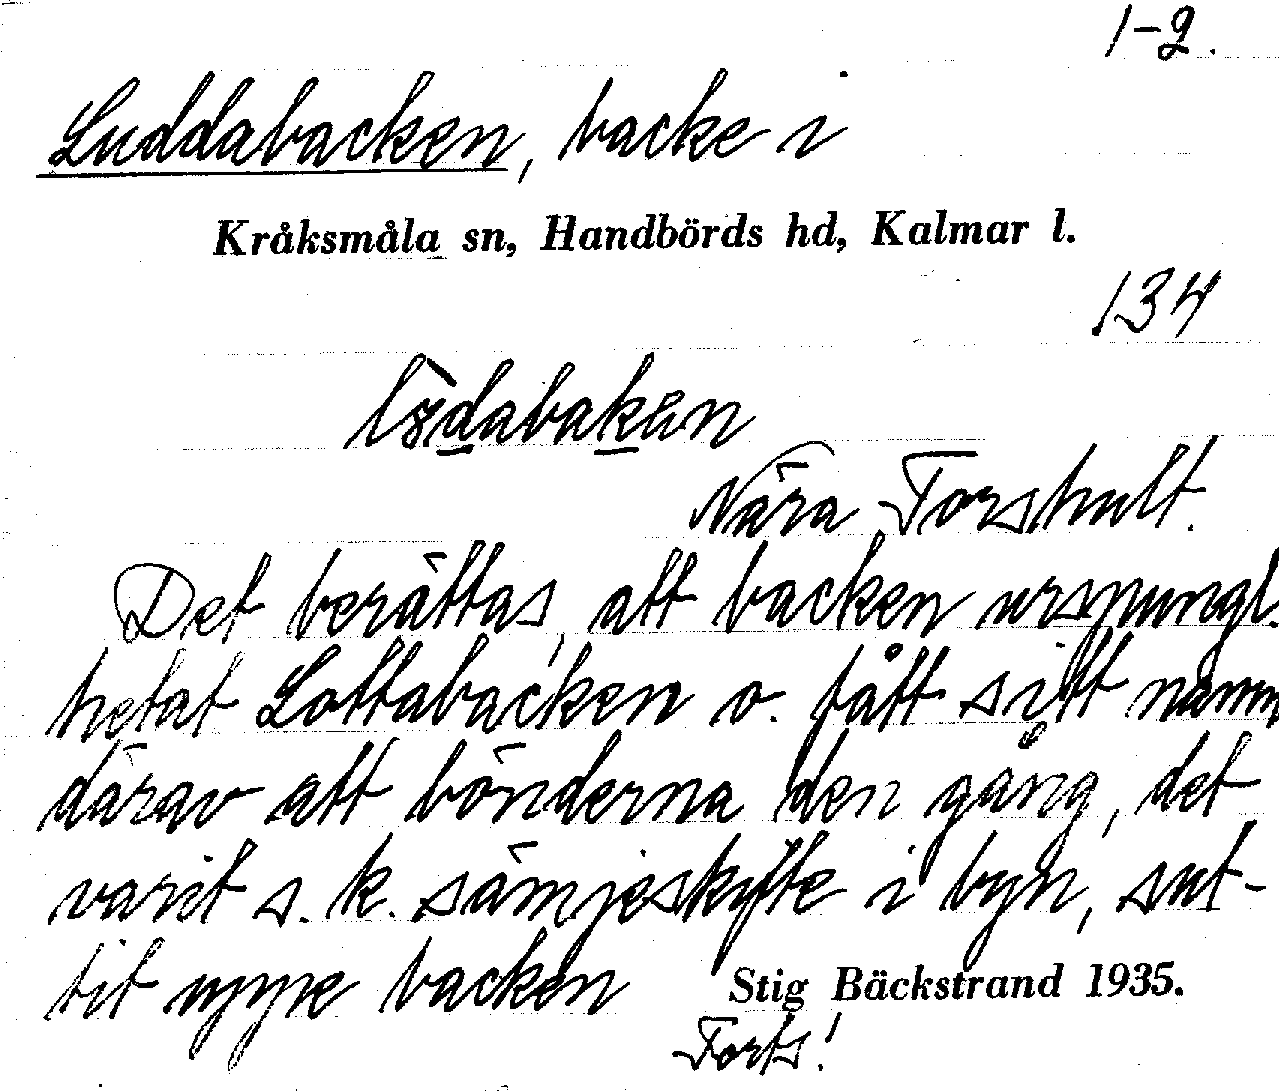 1-2.
Luddabacken, backe i
Kråksmåla sn, Handbörds hd, Kalmar l.
134
Nära Forshult.
Det berättas, att backen urspungl.
hetat Lottabacken o. fått sitt namn
därav att bönderna den gång, det
varit s. k. sämjeskifte i byn, sut-
tit uppe backen
Stig Bäckstrand 1935.
Forts!